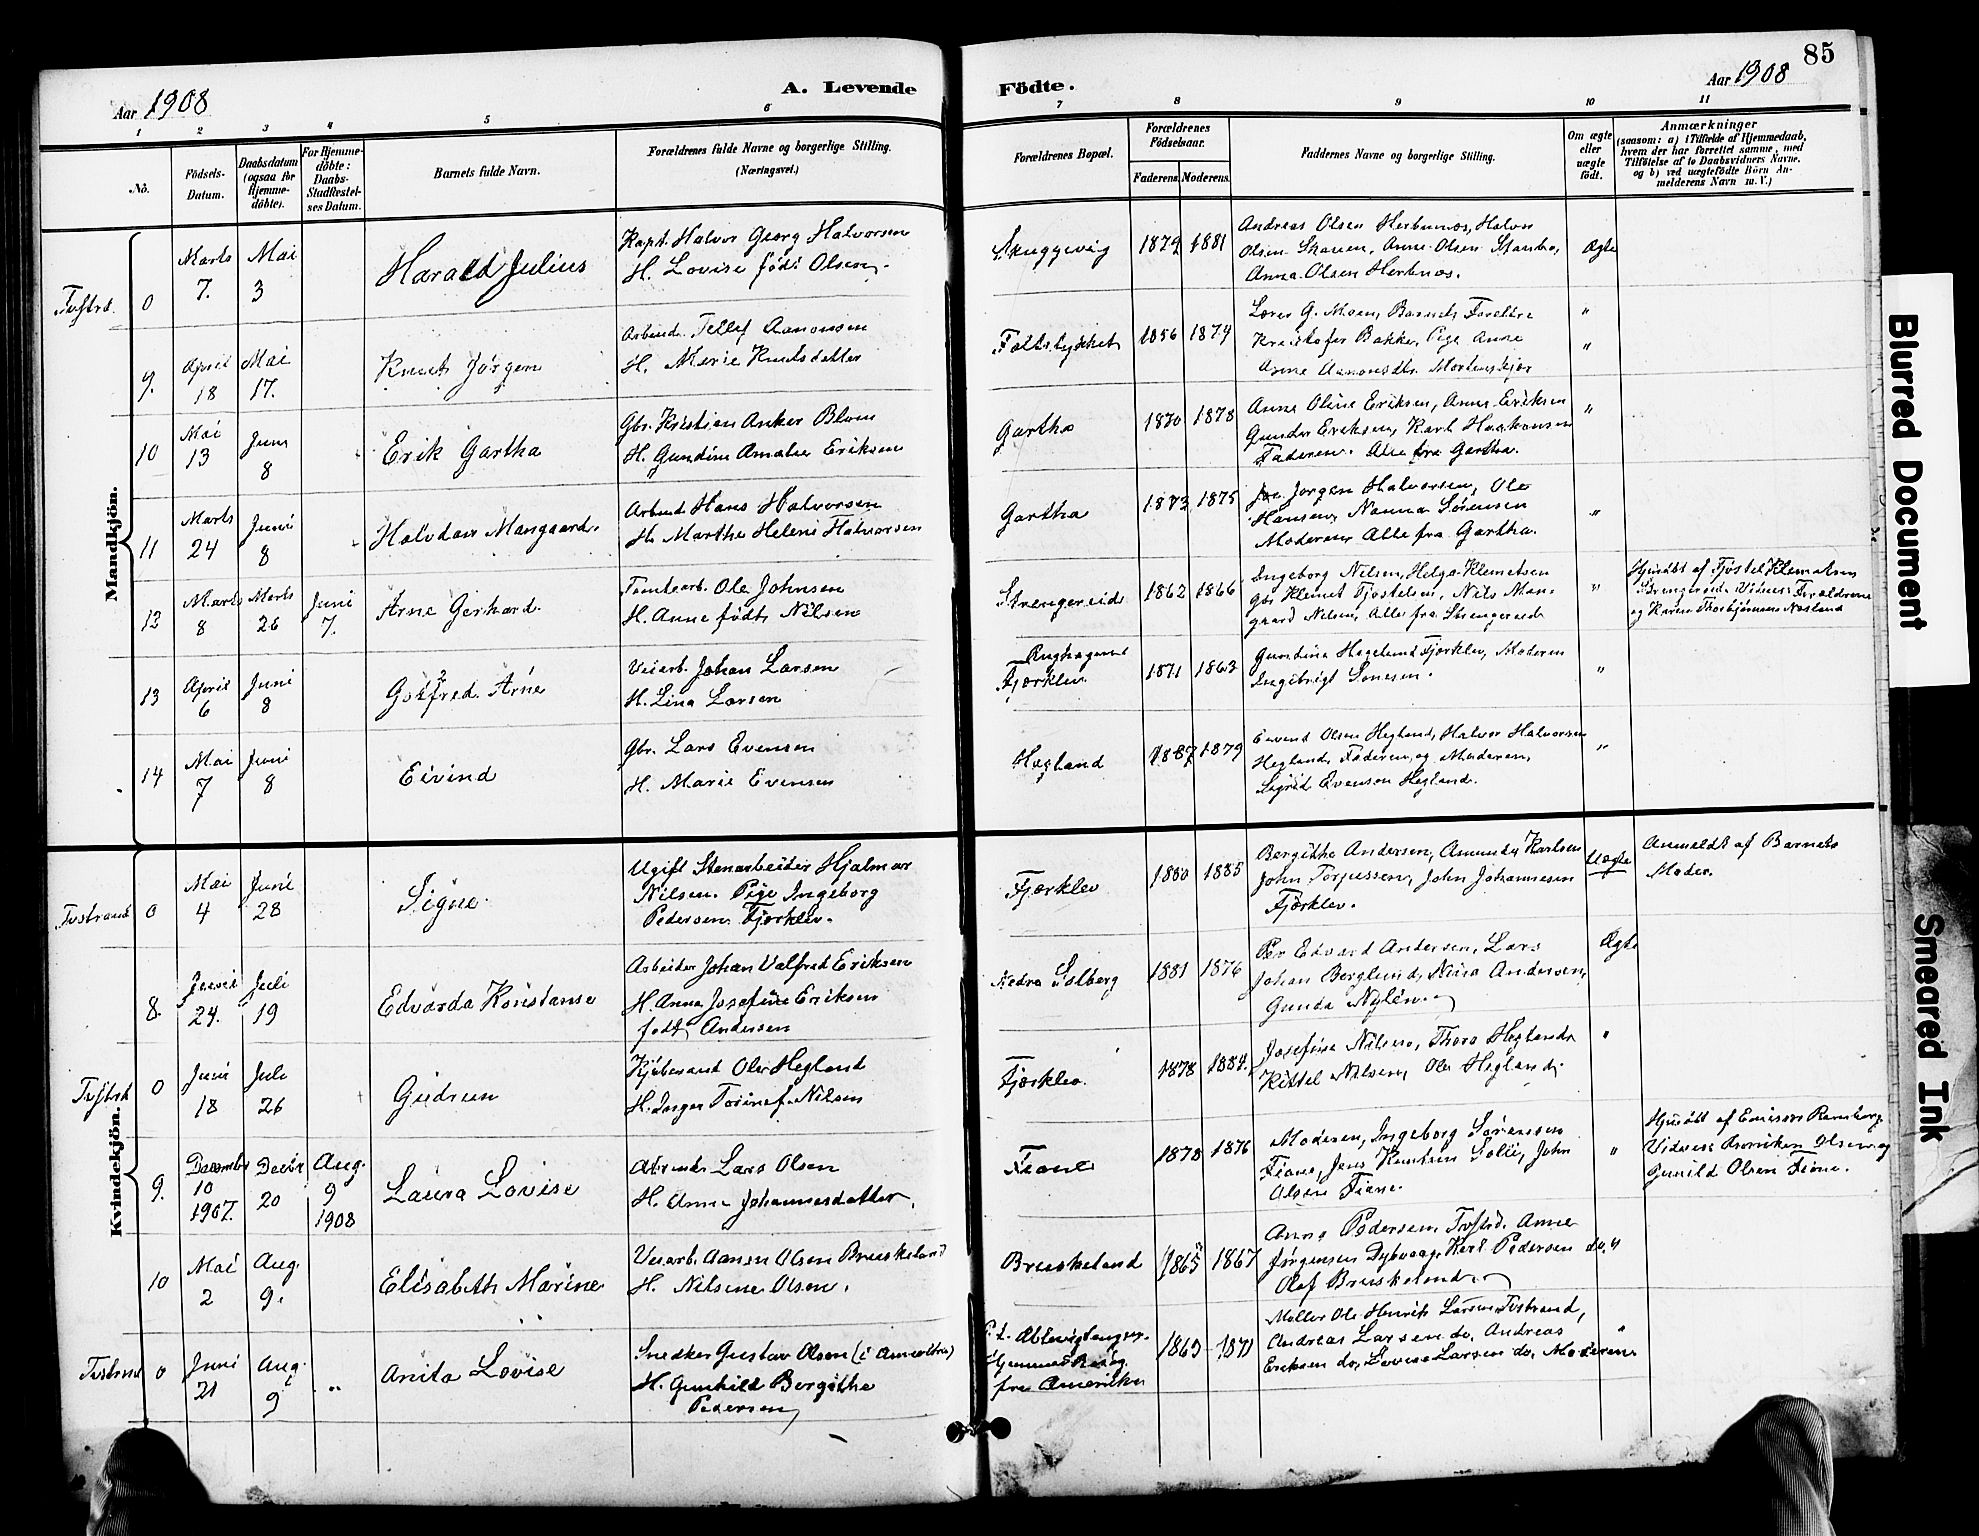 85
Aar 1908
A. Levende
Födte.
Aar 1908
1 2 3 4 5 6 7 8 9 10 11
No.
Födsels-
Datum.
Daabsdatum
(ogsaa for
Hjemme-
döbte).
For Hjemme-
döbte:
Daabs-
Stadfæstel-
ses Datum.
Barnets fulde Navn.
Forældrenes fulde Navne og borgerlige Stilling.
(Næringsvei.)
Forældrenes Bopæl.
Forældrenes
Födselsaar.
Faderens. Moderens.
Faddernes Navne og borgerlige Stilling.
Om ægte
eller
uægte
født.
Anmærkninger
(saasom: a) i Tilfælde af Hjemmedaab,
hvem der har forrettet samme, med
Tilföielse af to Daabsvidners Navne.
og b) ved uægtefödte Börn An-
melderens Navn m. V.)
Mandkjön.
0
Marts
7.
Mai
3
Harald Julius
Kapt. Halvor Georg Halvorsen
H. Lovise född Olsen.
Skuggevig
1879 1881
Andreas Olsen Herbnæs, Halvor
Olsen Skauen, Anne Olsen
Anna Olsen Herbnæs.
Ægte
9.
April
18
Mai
17.
Knut Jörgen
Arbeid. Tellef Aanonsen
H. Marie Knutsdatter
1856 1879
Lærer G. Moen, Barnets Foreldre
Kristofer Bakke, Pige Anne
Aanonsdtr.
"
10
Mai
13
Juni
8
Erik Gartha
Gbr. Kristian Anker Blom
H. Gundine Amalie Eriksen
Gartha
1870 1878
Anne Oline Eriksen, Anne Eriksen
Gunder Eriksen, Karl Haakonsen
Faderen. Alle fra Gartha.
"
11
Marts
24
Juni
8
Halvdan Mangaard.
Arbeid Hans Halvorsen
H. Marthe Helene Halvorsen
Gartha
1873 1875
Jörgen Halvorsen, Ole
Hansen, Nanna Sörensen
Moderen, Alle fra Gartha.
"
12
Marts
8
Marts
26
Juni
7.
Arne Gerhard.
Tomtearb. Ole Johnsen
H. Anne född Nilsen
Strengereid
1862 1866
Ingeborg Nilsen, Helga Klemetsen
Gbr Klemet Tjöstelsen, Nils Man-
gaard Nilsen, Alle fra Strengereid
"
Hjdöbt af Tjöstel Klemetsen
Strengereid. Vidner: Forældrene
og Karen Thorbjörnsen Næsland
13
April
6
Juni
8
Gotfred Arne
Veiarb. Johan Larsen
H. Lina Larsen
Fjærklev.
1871 1863
Gundine Hægeland Fjærklev, Moderen
Ingebrigt Tönesen.
"
14
Mai
7
Juni
8
Eivind
Gbr. Lars Evensen
H. Marie Evensen
Hegland
1887 1879
Eivend Olsen Hegland, Halvor Halvorsen
Hegland, Faderen og Moderen,
Sigrid Evensen Hegland.
"
Kvindekjön.
Tvstrand
0
Mai
4
Juni
28
Signe.
Ugift Stenarbeider Hjalmar
Nilsen. Pige Ingeborg
Pedersen Fjærklev.
Fjærklev
1880 1885
Bergitthe Andersen, Amund Karlsen
John Torjussen, John Johannesen
Fjærklev.
Uægte
Anmeldt af Barnets
Moder.
8.
Juni
24.
Juli
19
Edvarda Konstanse
Arbeider Johan Valfred Eriksen
H. Anna Josefine Eriksen
född Andersen
Nedre Solberg
1881 1876
Per Edvard Andersen, Lars
Johan Berglund, Nina Andersen,
Gunda Nylén.
Ægte
Tvstrd
0
Juni
18
Juli
26
Gudrun
Kjöbmand Ole Hegland
H. Inger Torine f. Nilsen
Fjærklev.
1878 1884.
Josefine Nilsen, Thora Hegland
Kittel Nilsen, Ole Hegland.
"
9.
December
10
1907.
Decbr
20
Aug.
9
1908
Laura Lovise
Arbeid. Lars Olsen
H. Anne Johannesdatter.
Fiane
1878 1876
Moderen, Ingeborg Sörensen
Fiane, Jens Knutsen Solli, John
Olsen Fiane.
"
Hjdöbt af
Vidner: Olsen og
Gunild Olsen Fiane.
10
Mai
2
Aug.
9.
Elisabeth Marine
Veiarb. Aanen Olsen Bruskeland
H. Nilsine Olsen.
Bruskeland
1865 1867
Anna Pedersen, Tvstrd. Anne
Jörgensen Dybvaag, Karl Pedersen do,
Olaf Bruskeland.
"
Tvstrand
0
Juni
21
Aug.
9
"
Anita Lovise
Snedker Gustav Olsen (i Amerika)
H. Gunhild Bergitthe
Pedersen
fra Amerika
1863 1871
Möller Ole Henrik Larsen Tvstrand,
Andreas Larsen do, Andreas
Eriksen do, Lovise Larsen do, Moderen
"
Blurred Document
Smeared Ink